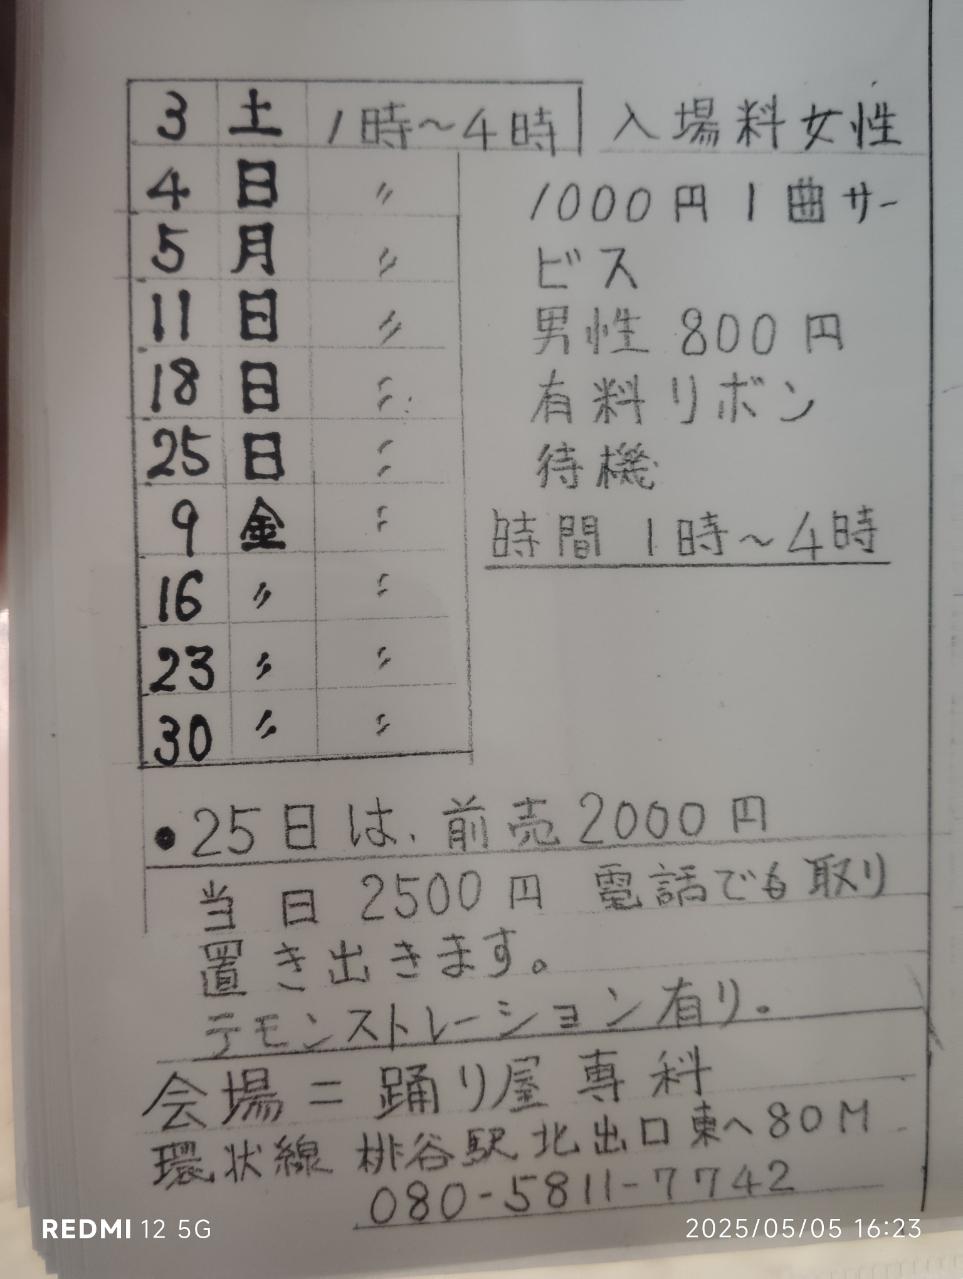 3 土 1時～4時
4 日 〃
5 月 〃
11 日 〃
18 日 〃
25 日 〃
9 金 〃
16 〃 〃
23 〃 〃
30 〃 〃
入場料女性
1000円1曲サー
ビス
男性800円
有料リボン
待機
時間 1時～4時
●25日は、前売2000円
当日2500円 電話でも取り
置き出きます。
デモンストレーション有り。
会場＝踊り屋専科
環状線 桃谷駅北出口東へ80M
080-5811-7742
REDMI 12 5G
2025/05/05 16:23